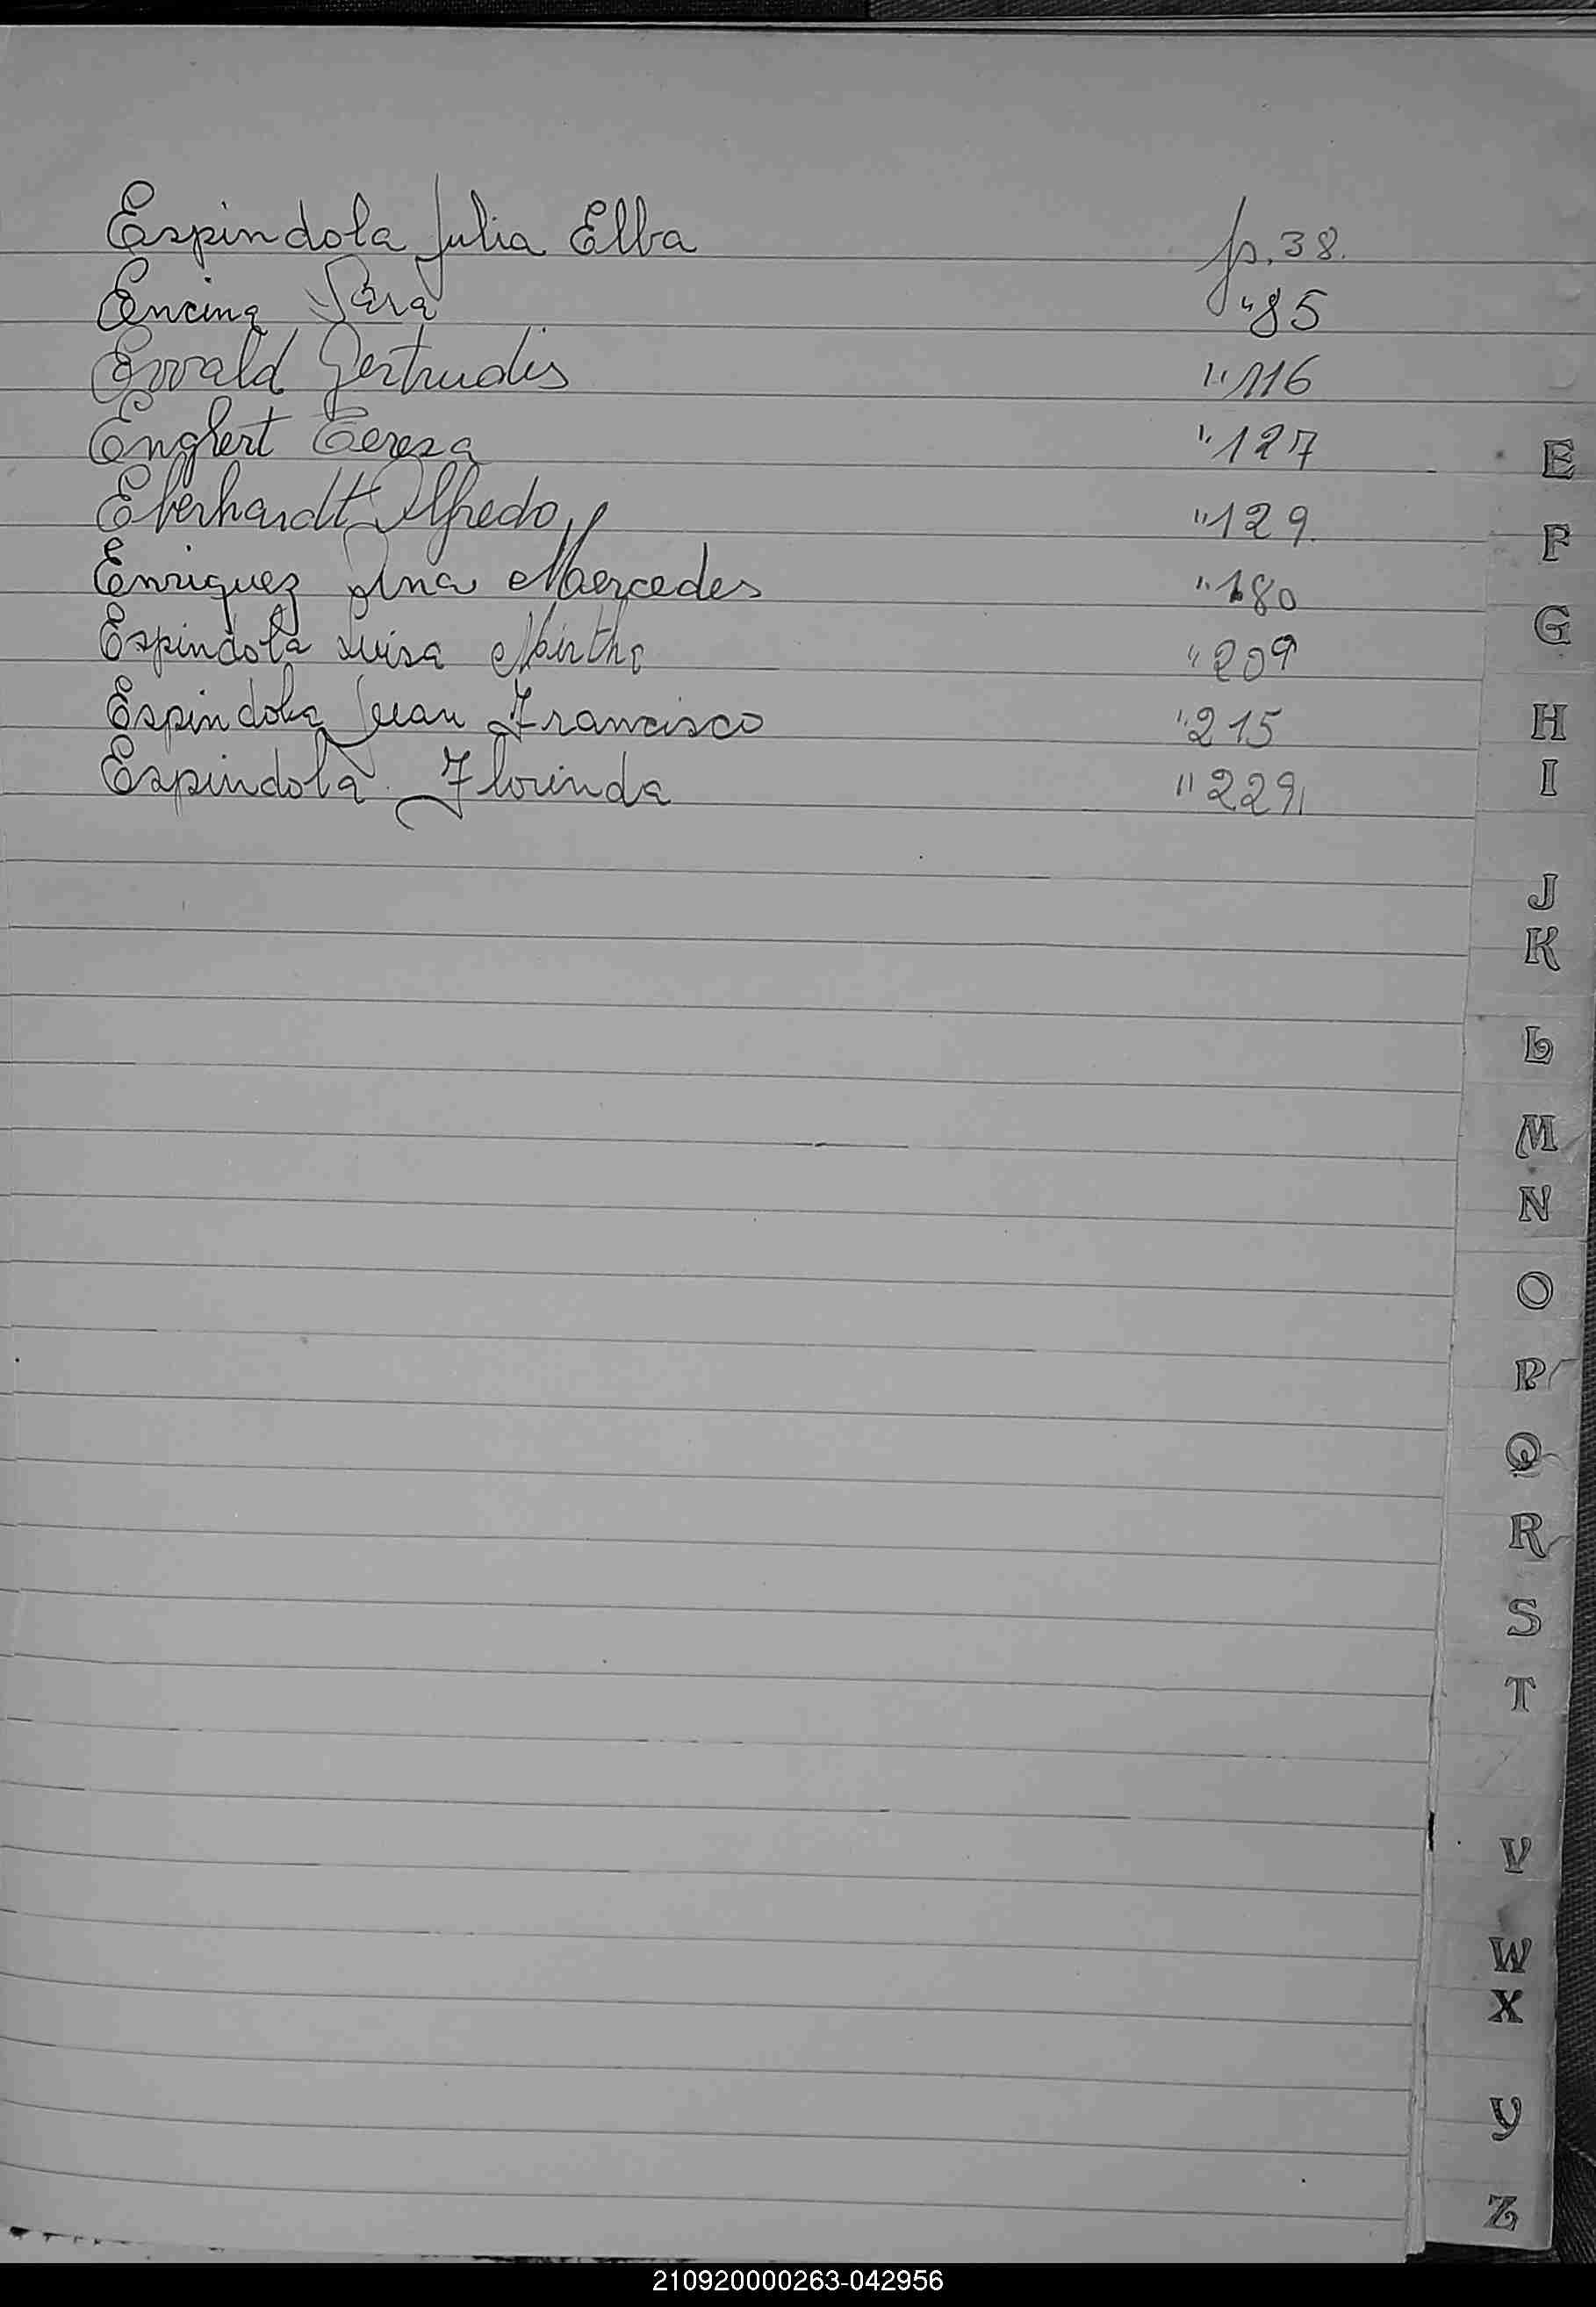 Espindola Julia Elba p. 38.
Encina Sara " 85
Ewald Gertrudis " 116
Englert Teresa " 127
Eberhardt Alfredo " 129.
Enriquez Ana Mercedes " 180
Espindola Luisa Mirtha " 209
Espindola Juan Francisco " 215
Espindola Florinda " 229
E
F
G
H
I
J
K
L
M
N
O
P
Q
R
S
T
V
W
X
Y
Z
210920000263-042956